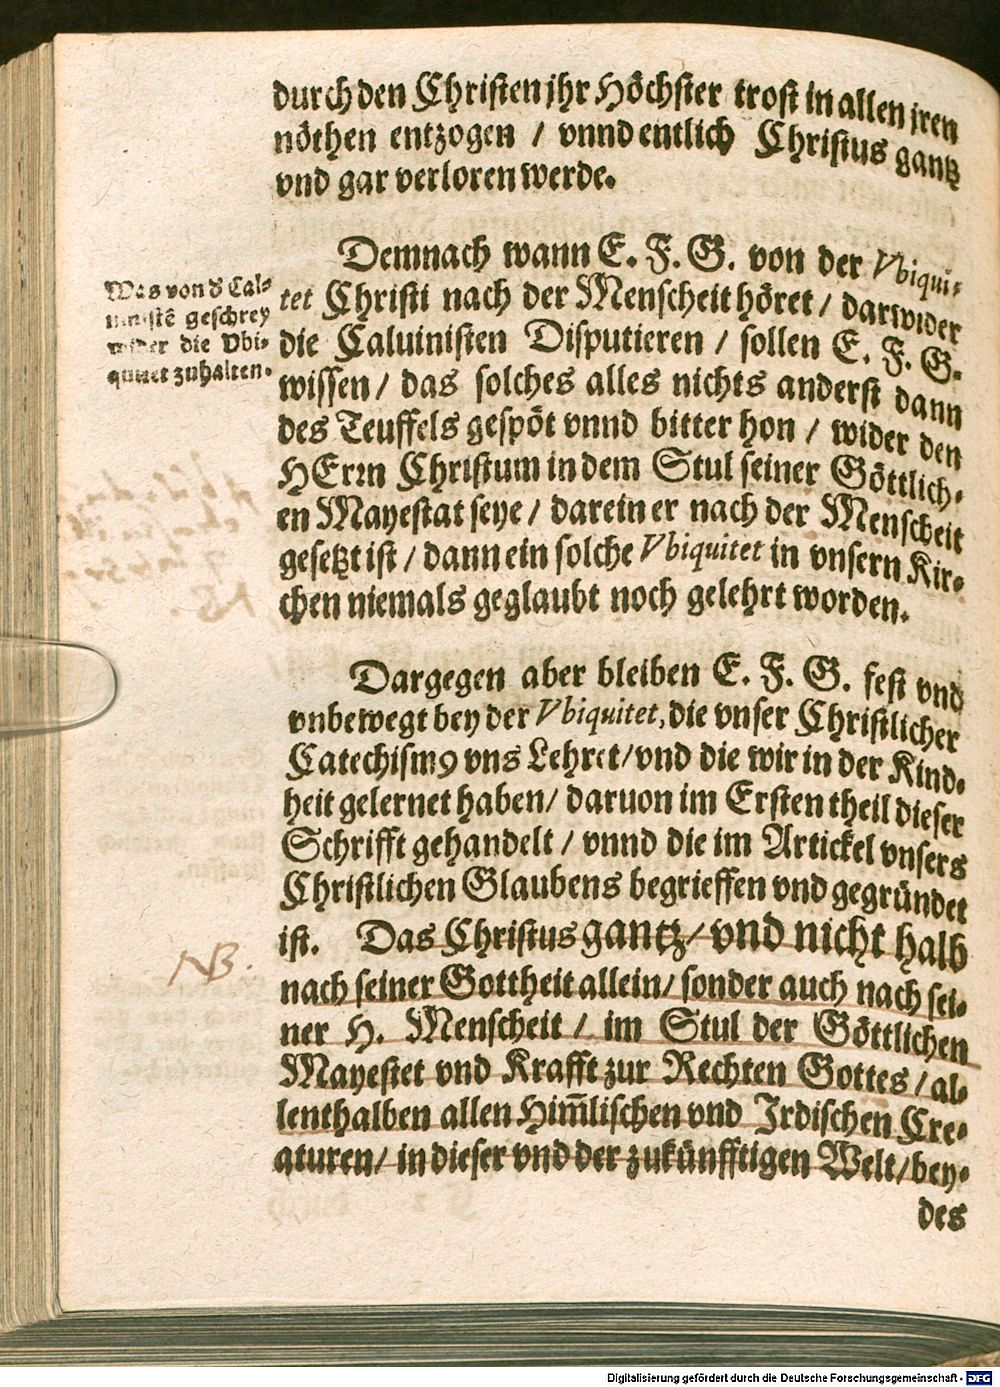 durch den Christen jhr Höchster trost in allen jren
nöthen entzogen / vnnd entlich Christus gantz
vnd gar verloren werde.
Demnach wann E. F. G. von der Vbiqui-
tet Christi nach der Menscheit höret / darwider
die Caluinisten Disputieren / sollen E. F. G.
wissen / das solches alles nichts anderst dann
des Teuffels gespöt vnnd bitter hon / wider den
HErrn Christum in dem Stul seiner Göttlich-
en Mayestat seye / darein er nach der Menscheit
gesetzt ist / dann ein solche Vbiquitet in vnsern Kir-
chen niemals geglaubt noch gelehrt worden.
Was von d Cal-
uinistẽ geschrey
wider die Vbi-
quitet zuhalten.
Dargegen aber bleiben E. F. G. fest vnd
vnbewegt bey der Vbiquitet, die vnser Christlicher
Catechismꝰ vns Lehret / vnd die wir in der Kind-
heit gelernet haben / daruon im Ersten theil dieser
Schrifft gehandelt / vnnd die im Artickel vnsers
Christlichen Glaubens begrieffen vnd gegründet
ist. Das Christus gantz / vnd nicht halb
NB.
nach seiner Gottheit allein / sonder auch nach sei-
ner H. Menscheit / im Stul der Göttlichen
Mayestet vnd Krafft zur Rechten Gottes / al-
lenthalben allen Him̃lischen vnd Irdischen Cre-
aturen / in dieser vnd der zukünfftigen Welt / bey-
des
Digitalisierung gefördert durch die Deutsche Forschungsgemeinschaft - DFG